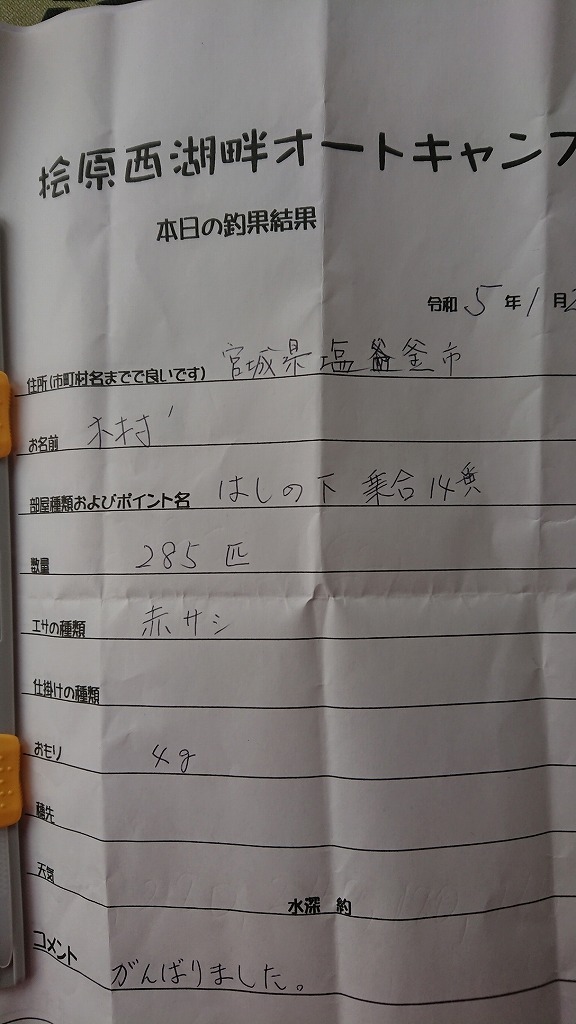 桧原西湖畔オートキャンプ
本日の釣果結果
令和 5 年 1 月 2
住所(市町村名までで良いです) 宮城県塩釜市
お名前 木村
部屋種類およびポイント名 はしの下 乗合14
数量 285 匹
エサの種類 赤サシ
仕掛けの種類
おもり 4g
穂先
天気
水深 約
コメント がんばりました。